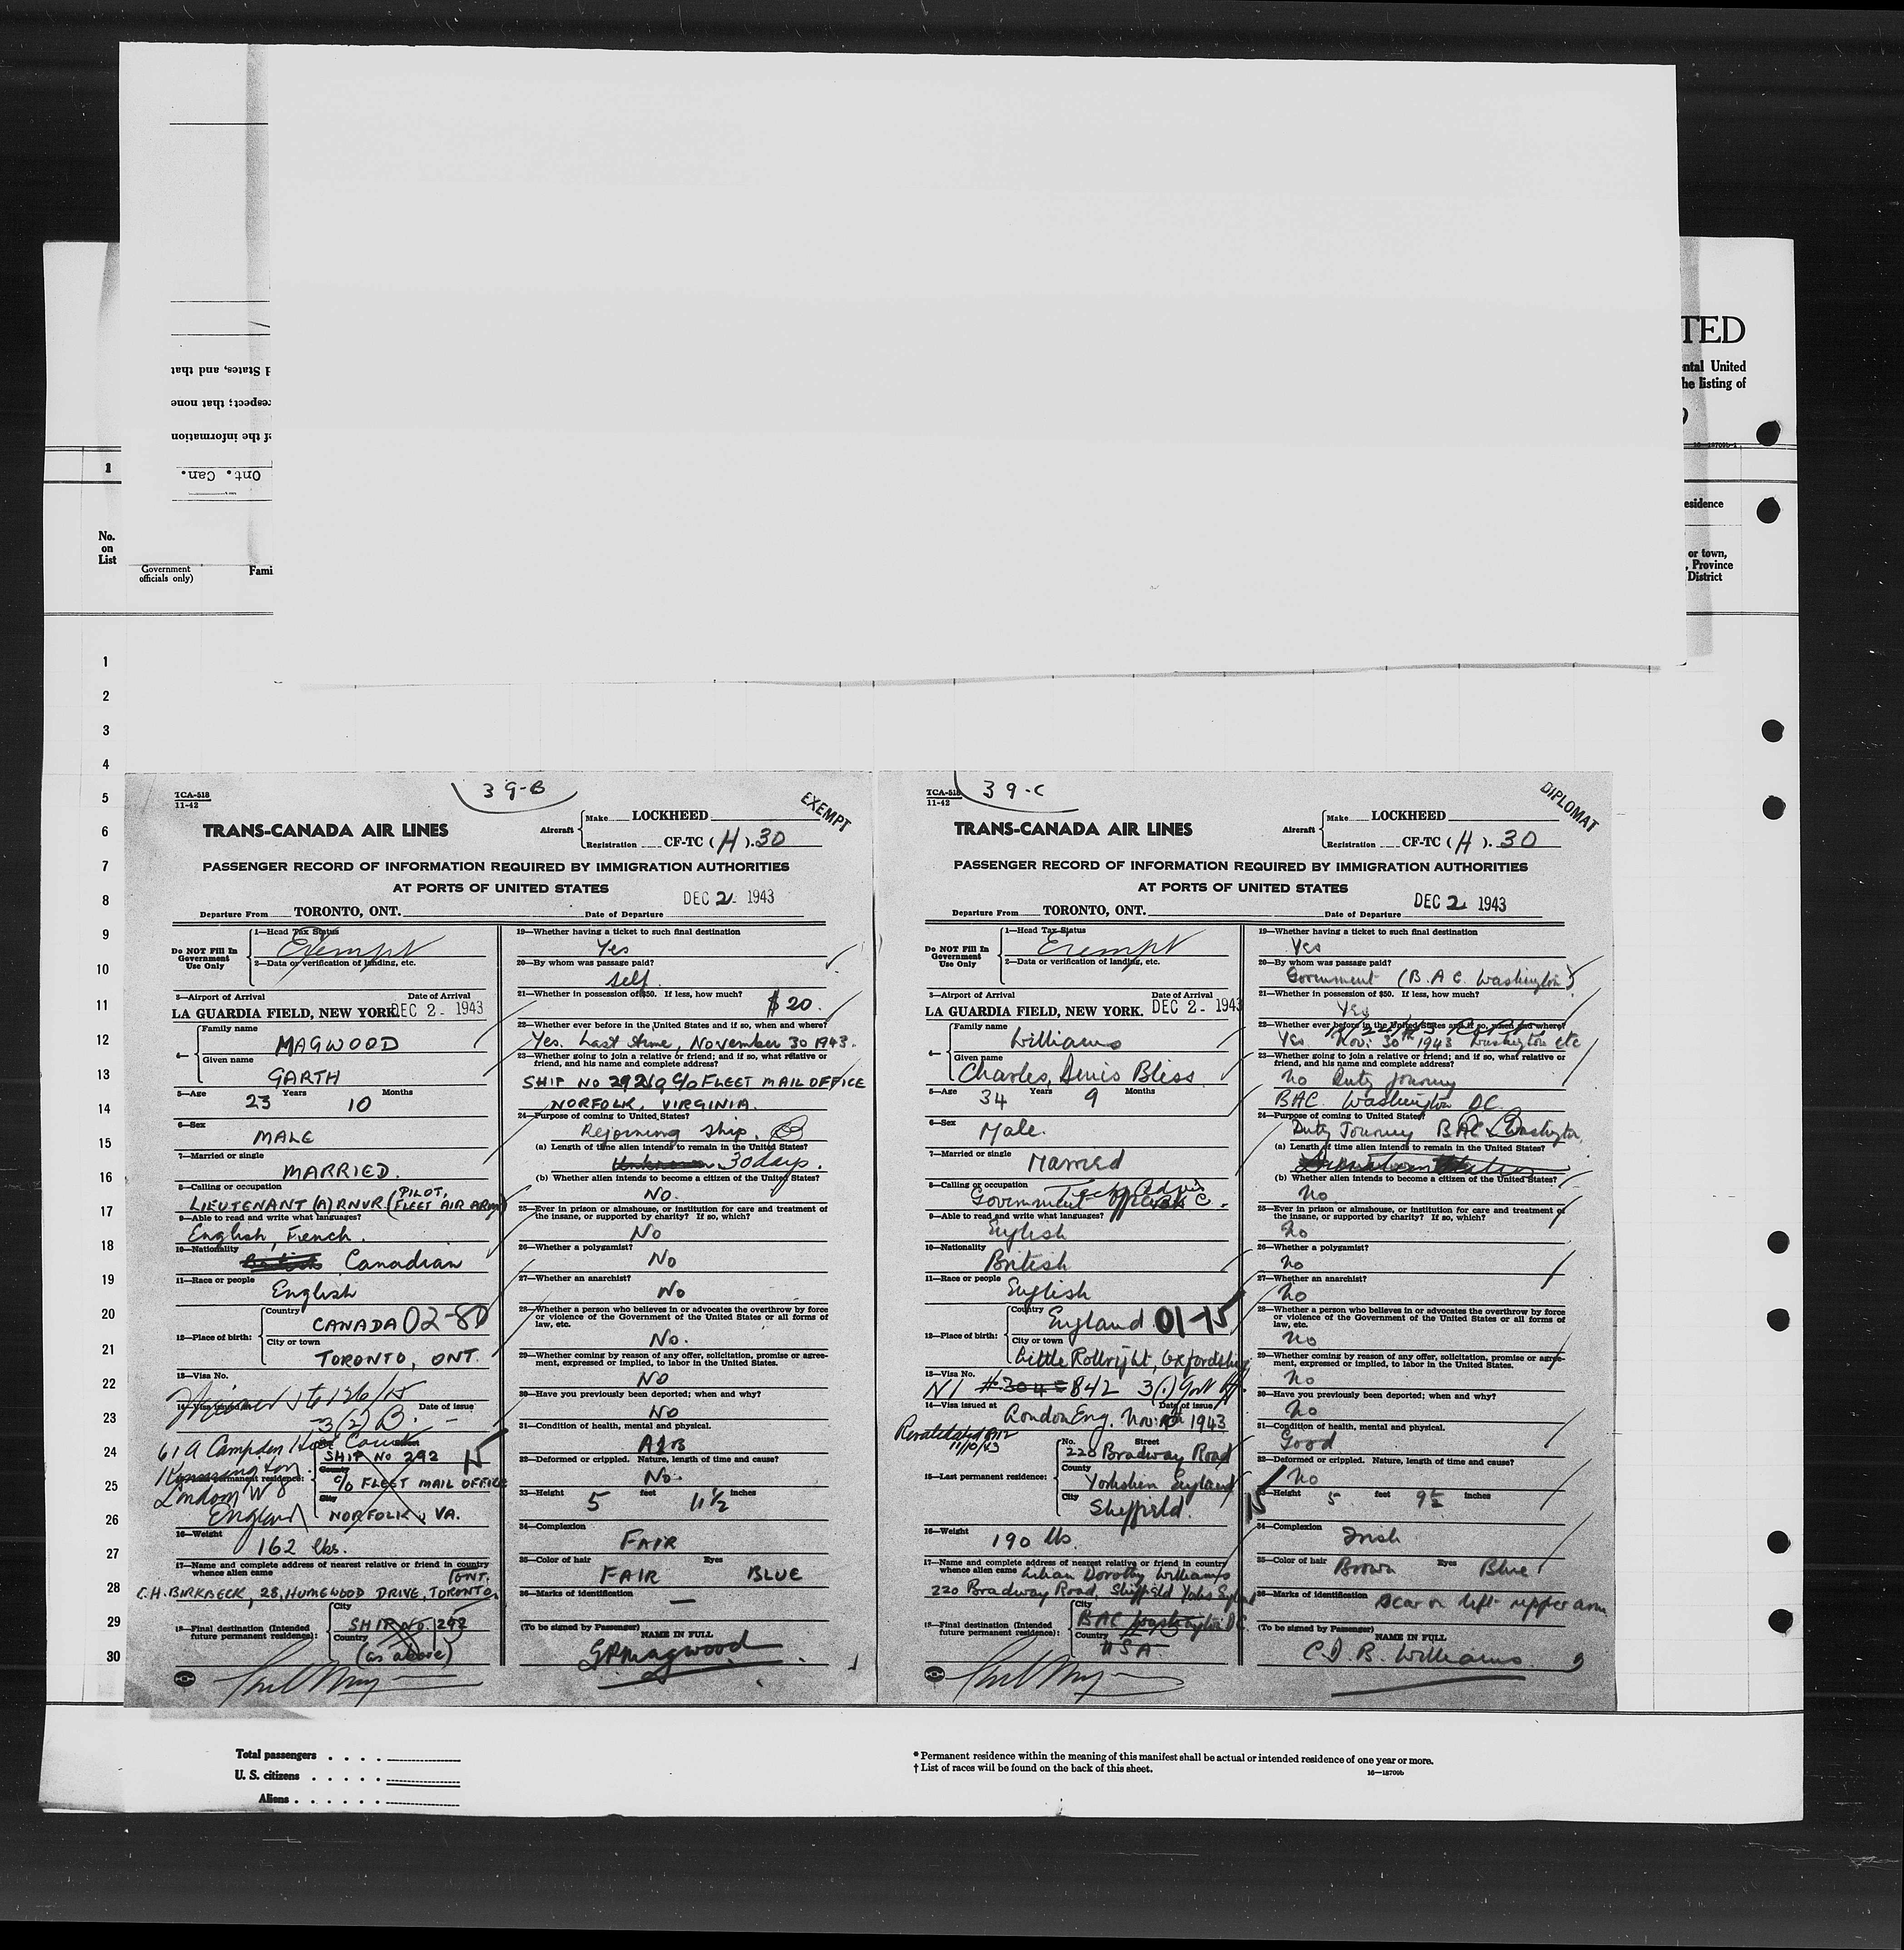 TED
ental United
he listing of
16—18709b-1
d States, and that
respect; that none
of the information
Ont. Can.
1
esidence
No.
on
List
Government
officials only)
Fami
or town,
, Province
District
1
2
3
4
5
6
7
8
9
10
11
12
13
14
15
16
17
18
19
20
21
22
23
24
25
26
27
28
29
30
39-B
TCA-518
11-42
EXEMPT
TRANS-CANADA AIR LINES
Aircraft
Make LOCKHEED
Registration CF-TC (H). 30
PASSENGER RECORD OF INFORMATION REQUIRED BY IMMIGRATION AUTHORITIES
AT PORTS OF UNITED STATES
DEC 2 - 1943
Departure From TORONTO, ONT. Date of Departure
Do NOT Fill In
Government
Use Only
1—Head Tax Status
Exempt
2—Data or verification of landing, etc.
3—Airport of Arrival Date of Arrival
LA GUARDIA FIELD, NEW YORK. DEC 2 - 1943
4—
Family name
MAGWOOD
Given name
GARTH
5—Age 23 Years 10 Months
6—Sex
MALE
7—Married or single
MARRIED.
8—Calling or occupation
LIEUTENANT (A) RNVR (PILOT, FLEET AIR ARM)
9—Able to read and write what languages?
English, French.
10—Nationality
British Canadian
11—Race or people
English
12—Place of birth:
Country
CANADA 02-80
City or town
TORONTO, ONT.
13—Visa No.
14—Visa issued at Date of issue
3(2) B. -
61A Campden Hill Court
Kensington
London W8
England
15
permanent residence:
SHIP No 292
County
c/o FLEET MAIL OFFICE
City
NORFOLK, VA.
16—Weight
162 lbs.
17—Name and complete address of nearest relative or friend in country
whence alien came
ONT.
C.H. BIRKBECK, 28, HUMEWOOD DRIVE, TORONTO
18—Final destination (Intended
future permanent residence):
City
SHIP No. 292
Country
(as above)
19—Whether having a ticket to such final destination
Yes
20—By whom was passage paid?
Self.
21—Whether in possession of $50. If less, how much?
$20.
22—Whether ever before in the United States and if so, when and where?
Yes. Last time, November 30 1943.
23—Whether going to join a relative or friend; and if so, what relative or
friend, and his name and complete address?
SHIP NO 292 c/o FLEET MAIL OFFICE
NORFOLK, VIRGINIA.
24—Purpose of coming to United States?
Rejoining ship.
(a) Length of time alien intends to remain in the United States?
Unknown 30 days.
(b) Whether alien intends to become a citizen of the United States?
No.
25—Ever in prison or almshouse, or institution for care and treatment of
the insane, or supported by charity? If so, which?
No
26—Whether a polygamist?
No
27—Whether an anarchist?
No
28—Whether a person who believes in or advocates the overthrow by force
or violence of the Government of the United States or all forms of
law, etc.
No.
29—Whether coming by reason of any offer, solicitation, promise or agree-
ment, expressed or implied, to labor in the United States.
No
30—Have you previously been deported; when and why?
No
31—Condition of health, mental and physical.
A1B
32—Deformed or crippled. Nature, length of time and cause?
No.
33—Height 5 feet 11½ inches
34—Complexion
FAIR
35—Color of hair Eyes
FAIR BLUE
36—Marks of identification
—
(To be signed by Passenger)
NAME IN FULL
GPMagwood
39-C
TCA-518
11-42
DIPLOMAT
TRANS-CANADA AIR LINES
Aircraft
Make LOCKHEED
Registration CF-TC (H). 30
PASSENGER RECORD OF INFORMATION REQUIRED BY IMMIGRATION AUTHORITIES
AT PORTS OF UNITED STATES
DEC 2 1943
Departure From TORONTO, ONT. Date of Departure
Do NOT Fill In
Government
Use Only
1—Head Tax Status
Exempt
2—Data or verification of landing, etc.
3—Airport of Arrival Date of Arrival
LA GUARDIA FIELD, NEW YORK. DEC 2 - 1943
4—
Family name
Williams
Given name
Charles, Denis Bliss
5—Age 34 Years 9 Months
6—Sex
Male.
7—Married or single
Married
8—Calling or occupation
Government
9—Able to read and write what languages?
English
10—Nationality
British
11—Race or people
English
12—Place of birth:
Country
England 01-15
City or town
Little Rollright, Oxfordshire
13—Visa No.
N1 842 3(1) Govt
14—Visa issued at Date of issue
London Eng. Nov 1943
Revalidated
11/10/43
15—Last permanent residence:
No. Street
220 Bradway Road
County
Yorkshire England
City
Sheffield.
15
16—Weight
190 lbs.
17—Name and complete address of nearest relative or friend in country
whence alien came Lilian Dorothy Williams
220 Bradway Road, Sheffield Yorks England
18—Final destination (Intended
future permanent residence):
City
BAC Washington DC
Country
USA
19—Whether having a ticket to such final destination
Yes
20—By whom was passage paid?
Government (B.A.C. Washington)
21—Whether in possession of $50. If less, how much?
Yes
22—Whether ever before in the United States and if so, when and where?
Yes Nov: 30th 1943 Washington etc
23—Whether going to join a relative or friend; and if so, what relative or
friend, and his name and complete address?
No Duty Journey
BAC. Washington DC.
24—Purpose of coming to United States?
Duty Journey BAC Washington
(a) Length of time alien intends to remain in the United States?
(b) Whether alien intends to become a citizen of the United States?
No
25—Ever in prison or almshouse, or institution for care and treatment of
the insane, or supported by charity? If so, which?
No
26—Whether a polygamist?
No
27—Whether an anarchist?
No
28—Whether a person who believes in or advocates the overthrow by force
or violence of the Government of the United States or all forms of
law, etc.
No
29—Whether coming by reason of any offer, solicitation, promise or agree-
ment, expressed or implied, to labor in the United States.
No
30—Have you previously been deported; when and why?
No
31—Condition of health, mental and physical.
Good
32—Deformed or crippled. Nature, length of time and cause?
No
33—Height 5 feet 9½ inches
34—Complexion
Fresh
35—Color of hair Brown Eyes Blue
36—Marks of identification Scar on left upper arm
(To be signed by Passenger)
NAME IN FULL
C. D. B. Williams.
Total passengers . . . .
U. S. citizens . . . . .
Aliens . . . . . .
* Permanent residence within the meaning of this manifest shall be actual or intended residence of one year or more.
† List of races will be found on the back of this sheet.
16—18709b